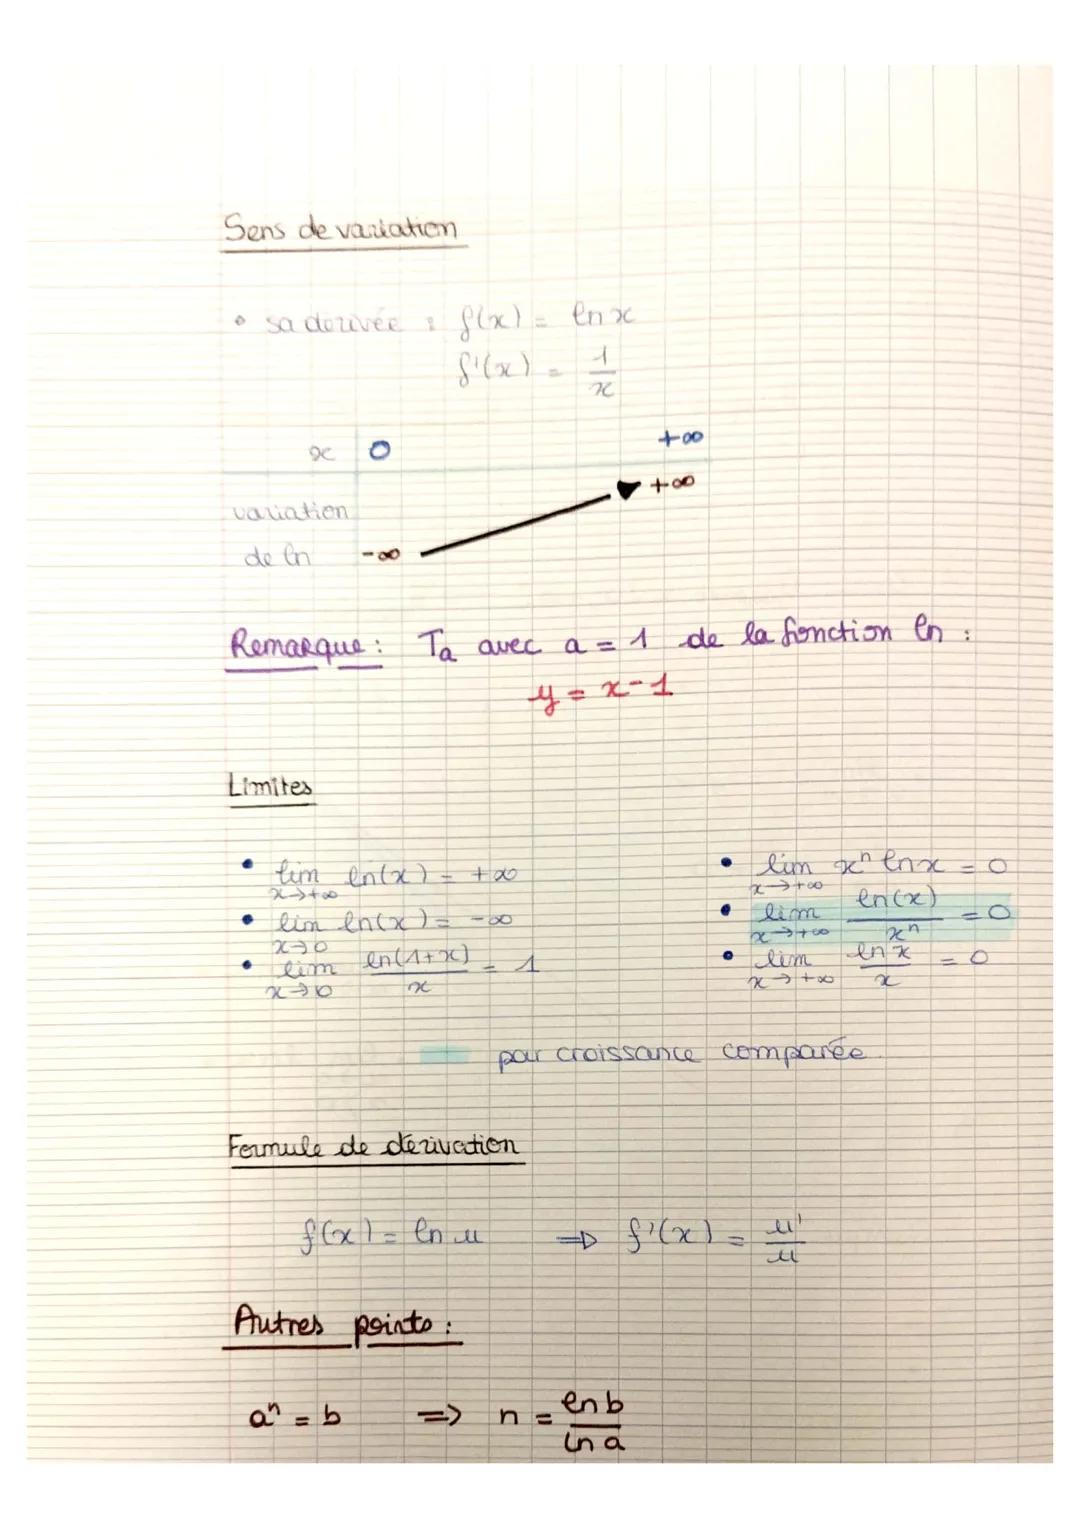 Sens de variation
• sa derivée : f(x) = ln x
f'(x) = 1/x
x | 0 +∞
variation +∞
de ln -∞
Remarque : Ta avec a = 1 de la fonction ln :
y = x - 1
Limites
• lim x→+∞ ln(x) = +∞
• lim x→0 ln(x) = -∞
• lim x→0 ln(1+x)/x = 1
• lim x→+∞ xⁿ ln x = 0
• lim x→+∞ ln(x)/xⁿ = 0
• lim x→+∞ ln x/x = 0
par croissance comparée.
Formule de dérivation
f(x) = ln u ⇒ f'(x) = u'/u
Autres points :
aⁿ = b => n = ln b/ln a